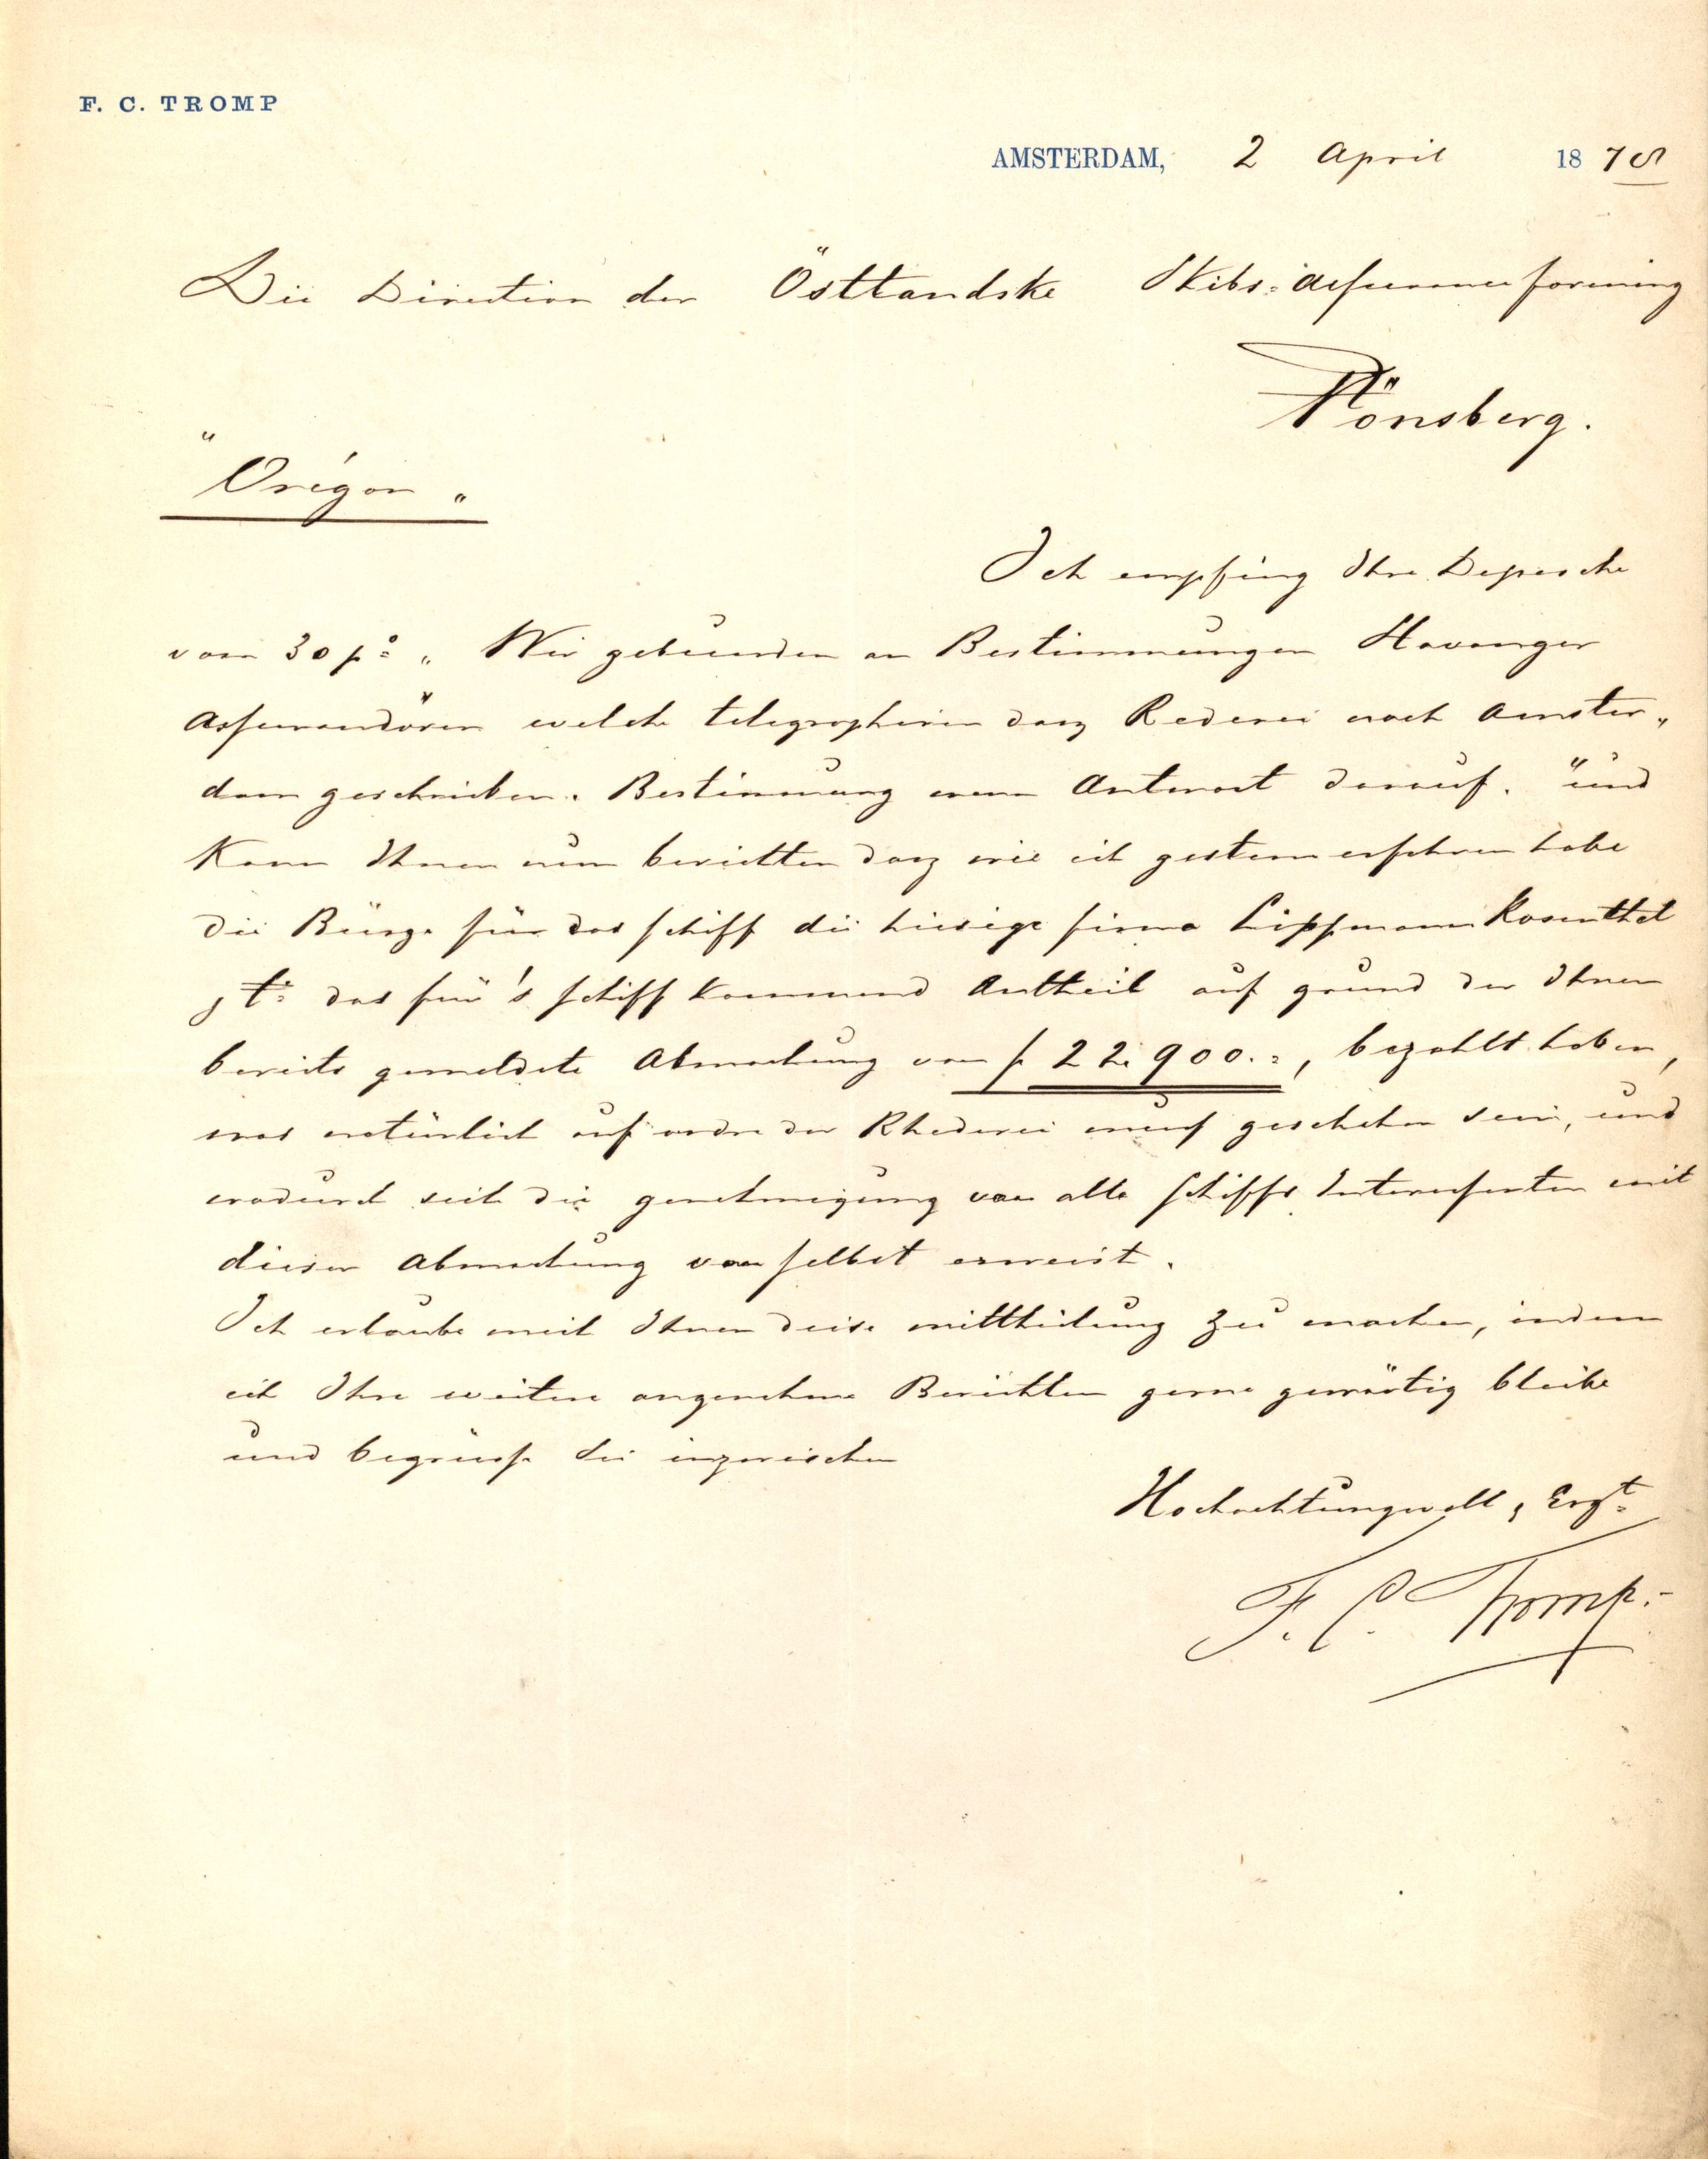 F. C. TROMP
AMSTERDAM, 2 April 1878
Die Direction der Östlandske Skibs-Assuranceforening
Tönsberg.
"Orégon"
Ich empfing Ihre Depesche
vom 30 po " Wir gebunden an Bestimmungen Stavanger
Assurandören welche telegraphiren dasz Rederei nach Amster„
dam geschrieben. Bestimmung wenn Antwort darauf." und
Kann Ihnen nun berichten dasz wie ich gestern erfahren habe
die Bürge für das schiff die hiesige firma Lippmann Rosenthal
das für's schiff kommend Antheil auf grund der Ihnen
bereits gemeldete Abmachung von f 22.900.=, bezahlt haben,
was natürlich auf ordre der Rhederei musz geschehen sein, und
wodurch sich die genehmigung von alle schiffs Interessenten mit
dieser Abmachung von selbst erweist.
Ich erlaube mich Ihnen diese mittheilung zu machen, indem
ich Ihre weitere angenehme Berichten gerne gewärtig bleibe
und begrüsse Sie inzwischen
Hochachtungsvoll, Ergt
F. C. Tromp.-